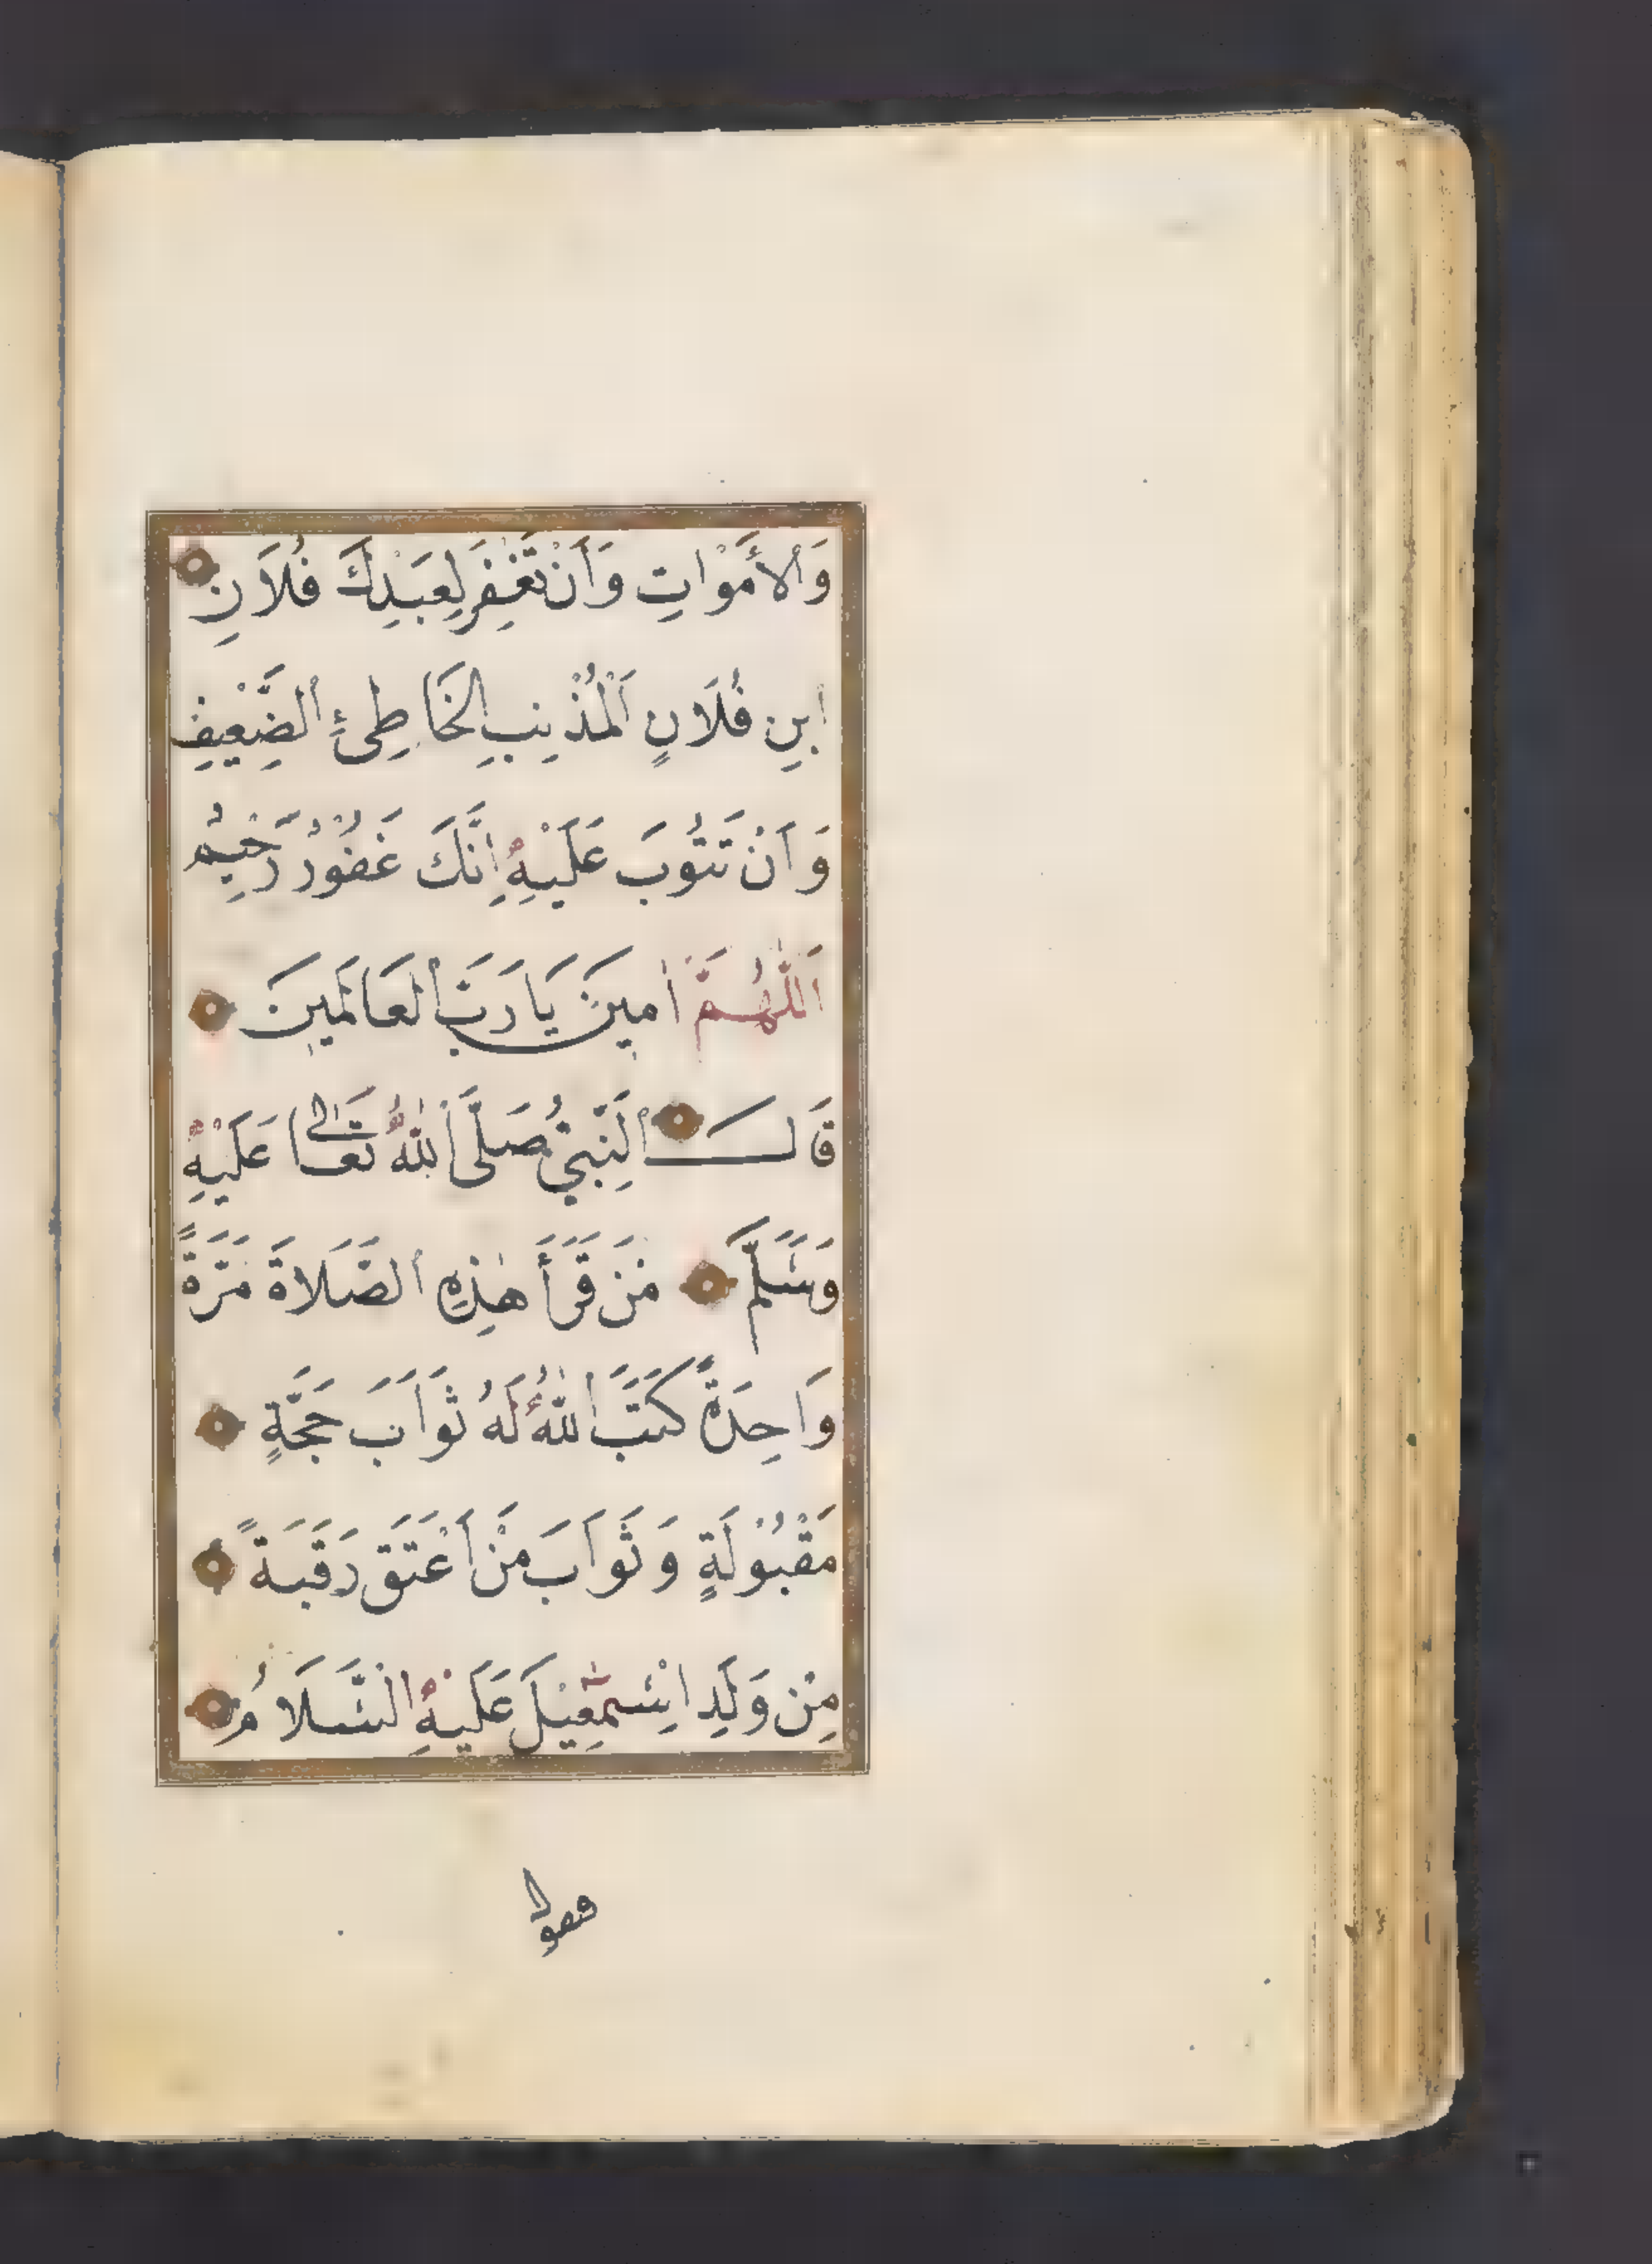 وَالْأَمْوَاتِ وَأَنْ تَغْفِرَ لِعَبْدِكَ فُلَانِ
ابْنِ فُلَانٍ الْمُذْنِبِ الْخَاطِئِ الضَّعِيفِ
وَاَنْ تَتُوبَ عَلَيْهِ اِنَّكَ غَفُورٌ رَحِيمٌ
اَللّٰهُمَّ اٰمِينَ يَا رَبَّ الْعَالَمِينَ
قَالَ النَّبِيُّ صَلَّى اللّٰهُ تَعَالٰى عَلَيْهِ
وَسَلَّمَ مَنْ قَرَأَ هٰذِهِ الصَّلَاةَ مَرَّةً
وَاحِدَةً كَتَبَ اللّٰهُ لَهُ ثَوَابَ حَجَّةٍ
مَقْبُولَةٍ وَثَوَابَ مَنْ اَعْتَقَ رَقَبَةً
مِنْ وَلَدِ اِسْمٰعِيلَ عَلَيْهِ السَّلَامُ